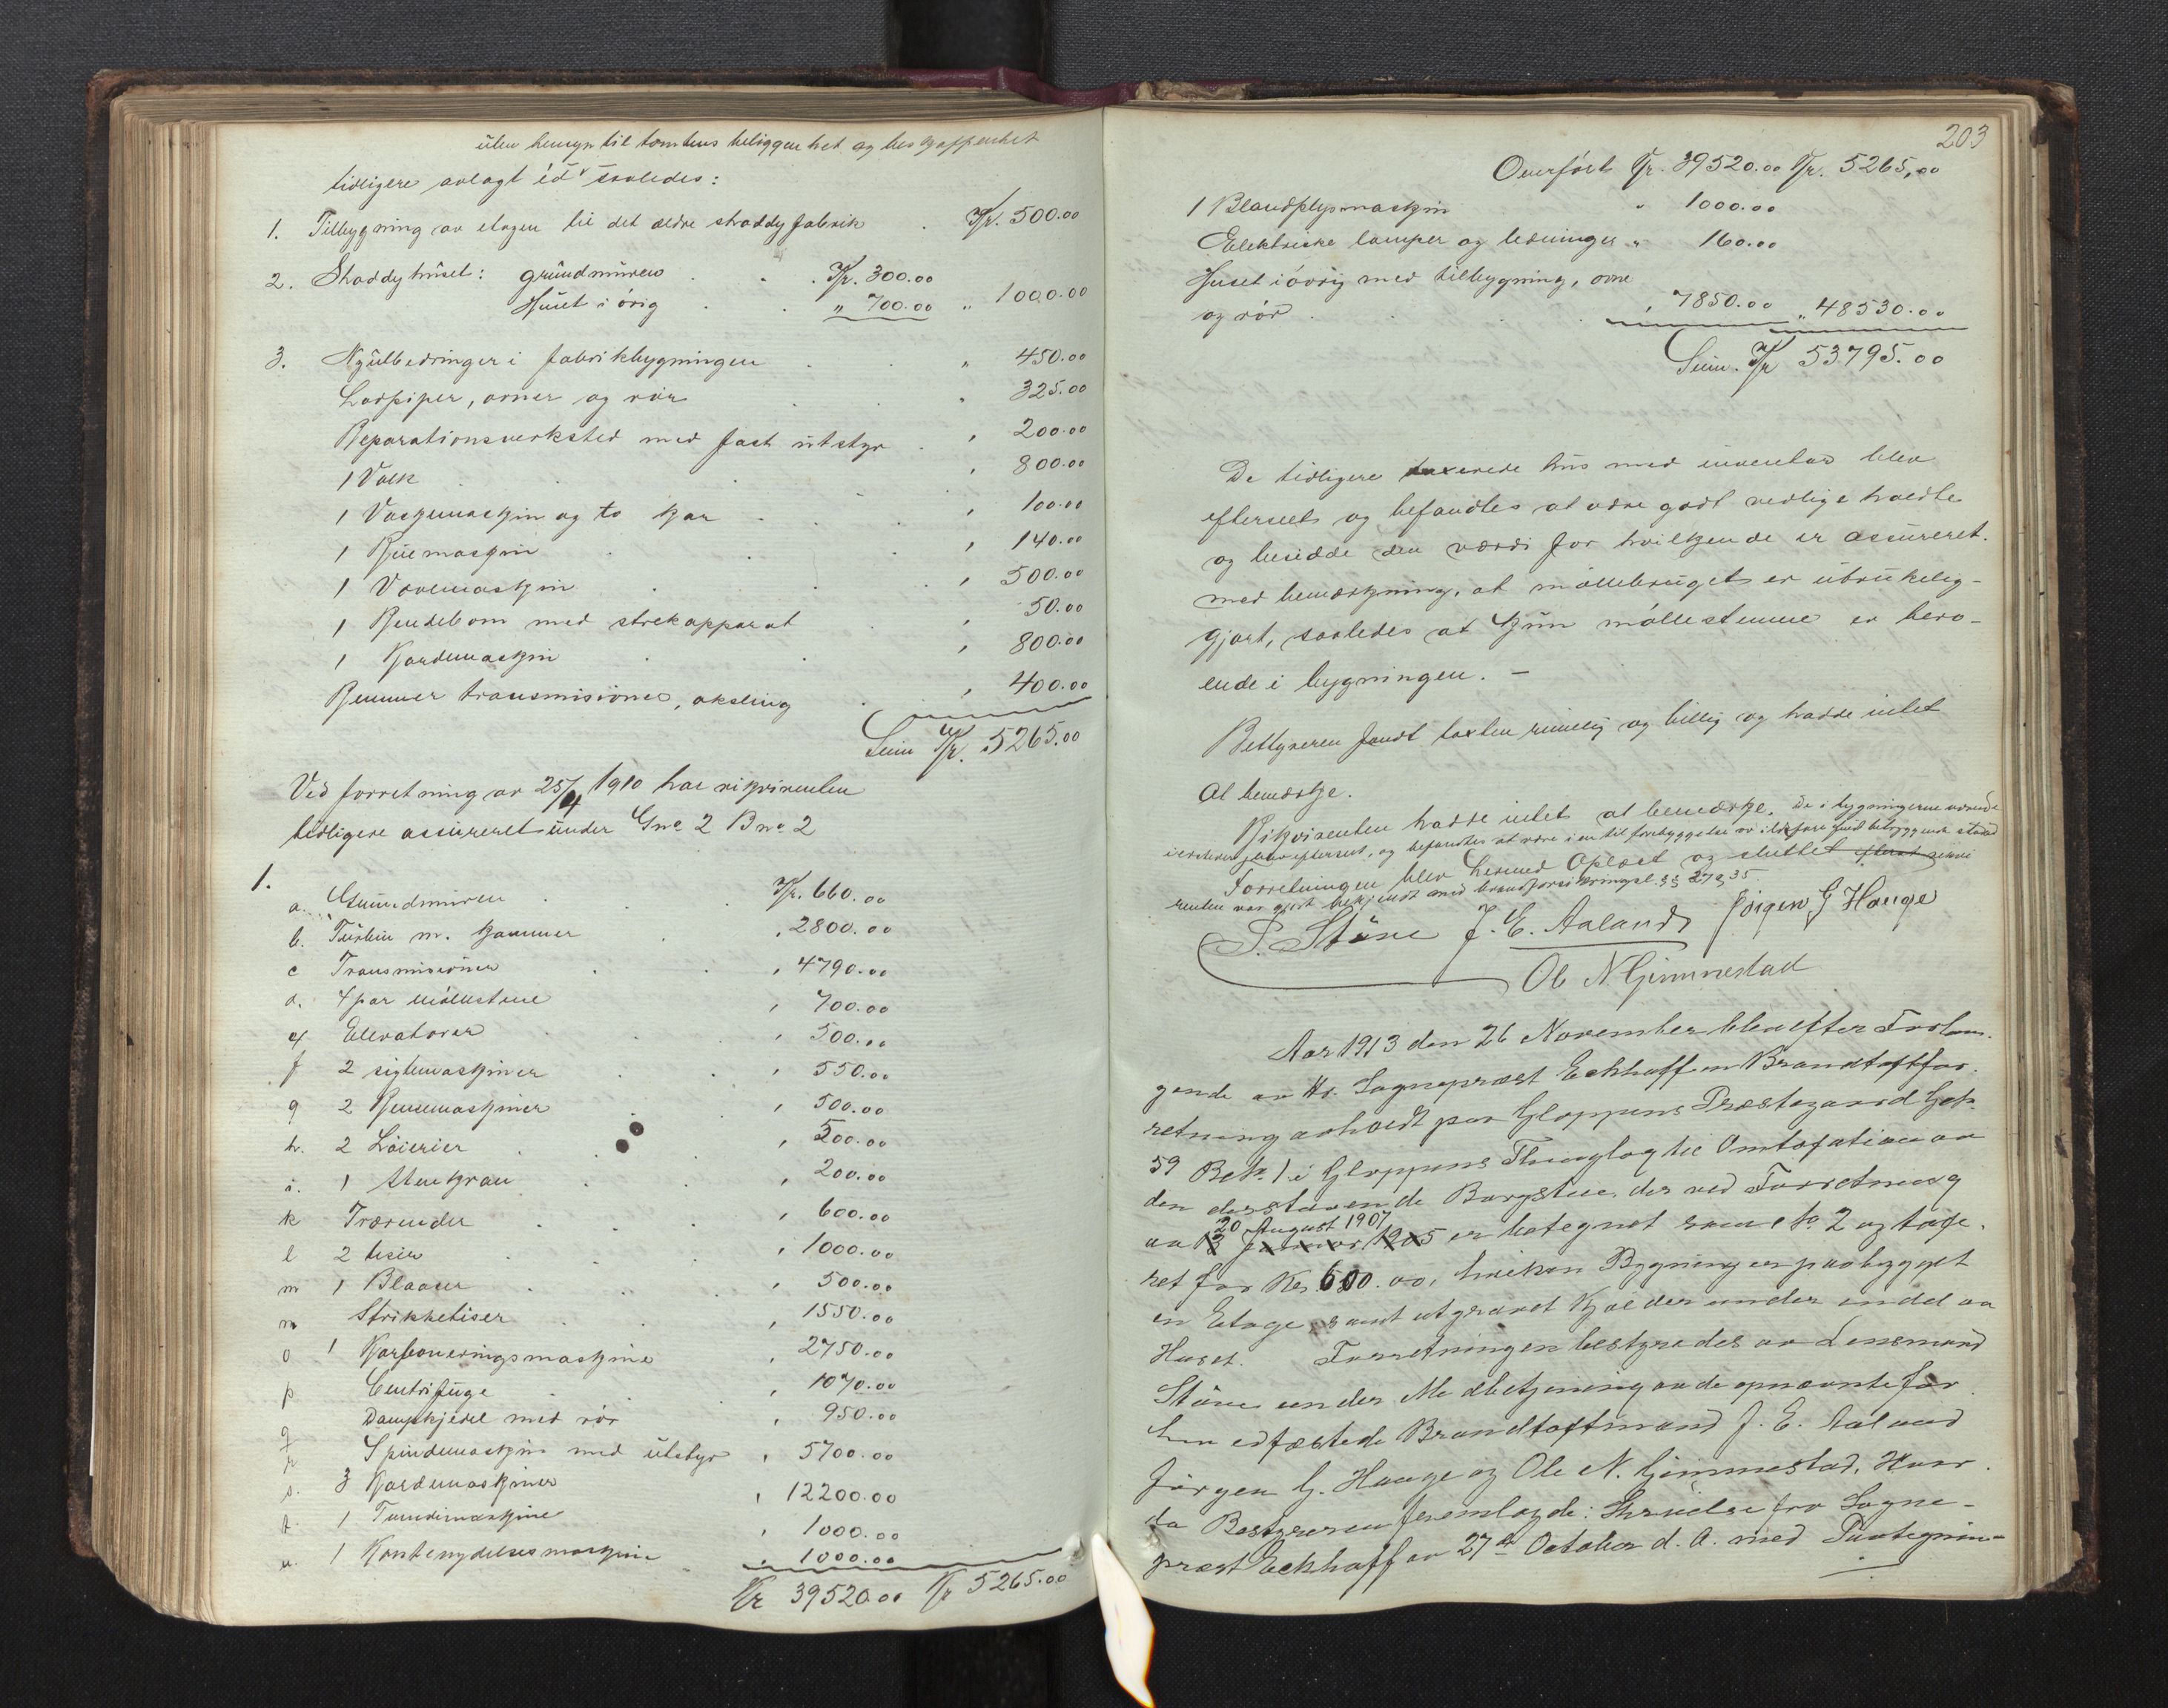 uten hensyn til tomtens beliggenhet og beskaffenhet
tidligere avlagt ed saaledes:
1. Tilbygning av etagen til det ældre shoddyfabrik . Kr. 500.00
2. Shoddyhuset: grundmuren . . . Kr. 300.00
Huset i övrig . . „ 700.00 „ 1000.00
3. Nyutbedringer i fabrikbygningen . „ 450.00
Lodpiper, ovner og rör . . „ 325.00
Reparationsverksted med fast utstyr . „ 200.00
1 Valk . . . „ 800.00
1 Vaskemaskin og to kar . . „ 100.00
1 Ruemaskin . . . „ 140.00
1 Vævemaskin . . . „ 500.00
1 Rendebom med strekapparat . „ 50.00
1 Kardemaskin . . „ 800.00
Remmer transmisioner, aksling . „ 400.00
Sum Kr. 5265.00
Ved forretning av 25/4 1910 har rikvirenten
tidligere assureret under Gno 2 Bno 2
1.
a. Grundmuren . . Kr. 660.00
b. Turbin m. kammer . „ 2800.00
c Transmisioner . . „ 4790.00
d. 4 par möllestene „ 700.00
e Elevatorer . . „ 500.00
f 2 sigtemaskiner . . „ 550.00
g 2 Rensemaskiner . „ 500.00
h. 2 Loierier . . „ 200.00
i. 1 Stenkran . . „ 200.00
k Trærender . . . „ 600.00
l 2 tesier . . „ 1000.00
m 1 Blaaser . . „ 500.00
n Strikketiser . . „ 1550.00
o 1 Karboneringsmaskine „ 2750.00
p Centrifuge . . „ 1070.00
q Dampkjedel med rör „ 950.00
r Spindemaskin med utstyr „ 5700.00
s. 3 Kardemaskiner „ 12200.00
t. 1 Tvindemaskine „ 1000.00
u. 1 „ 1000.00
Kr 39520.00 Kr 5265.00
203
Overfört Kr. 39520.00 Kr. 5265,00
1 „ 1000.00
Elektriske lamper og ledninger „ 160.00
Huset iövrig med tilbygning, ovne
og rör . . . „ 7850.00 „ 48530.00
Sum. Kr 53795.00
De tidligere taxerede hus med inventar blev
efterseet og befandtes at være godt vedlige holdte
og besidde den værdi for hvilken de er assureret.
med bemærkning, at möllebruget er ubrukelig-
gjort, saaledes at kun möllestenene er bero-
ende i bygningen. —
Bestyreren fandt taxten rimelig og billig og hadde intet
at bemærke.
Rikvirenten hadde intet at bemærke. De i bygningerne værende
ildsteder blev efterseet, og befandtes at være i en til forebyggelse av ildsfare fuldt betryggende stand
Forretningen blev hermed Oplæst og sluttet efterat rekvi
renten var gjort bekjendt med brandforsikringsl. §§ 27 og 35.
S. Störe J. E. Aaland Jörgen G Hauge
Ole N. Gimmestad
Aar 1913 den 26 November blev efter Forlan-
gende av Hr. Sogneprest Eckhoff en Brandtaxtfor-
retning avholdt paa Gloppens Præstegaard Gn.
59 Bn. 1 i Gloppens Thinglag til Omtaxation av
den derstaaende Borgstue, der ved Forretning
20 August 1907
av 13 Januar 1905 er betegnet som No 2 og taxe-
ret for Kr. 600.00, hvilken Bygning er paabygget
en Etage samt utgravet Kjælder under endel av
Huset. Forretningen bestyredes av Lensmand
Störe under Medbetjening av de opnævnte for
hen edfæstede Brandtaxtmænd J. E. Aaland
Jörgen G. Hauge og Ole N. Gimmestad. Hvor-
da Bestyreren fremlagde: Skrivelse fra Sogne-
prest Eckhoff av 27de October d. A. med Paategnin-